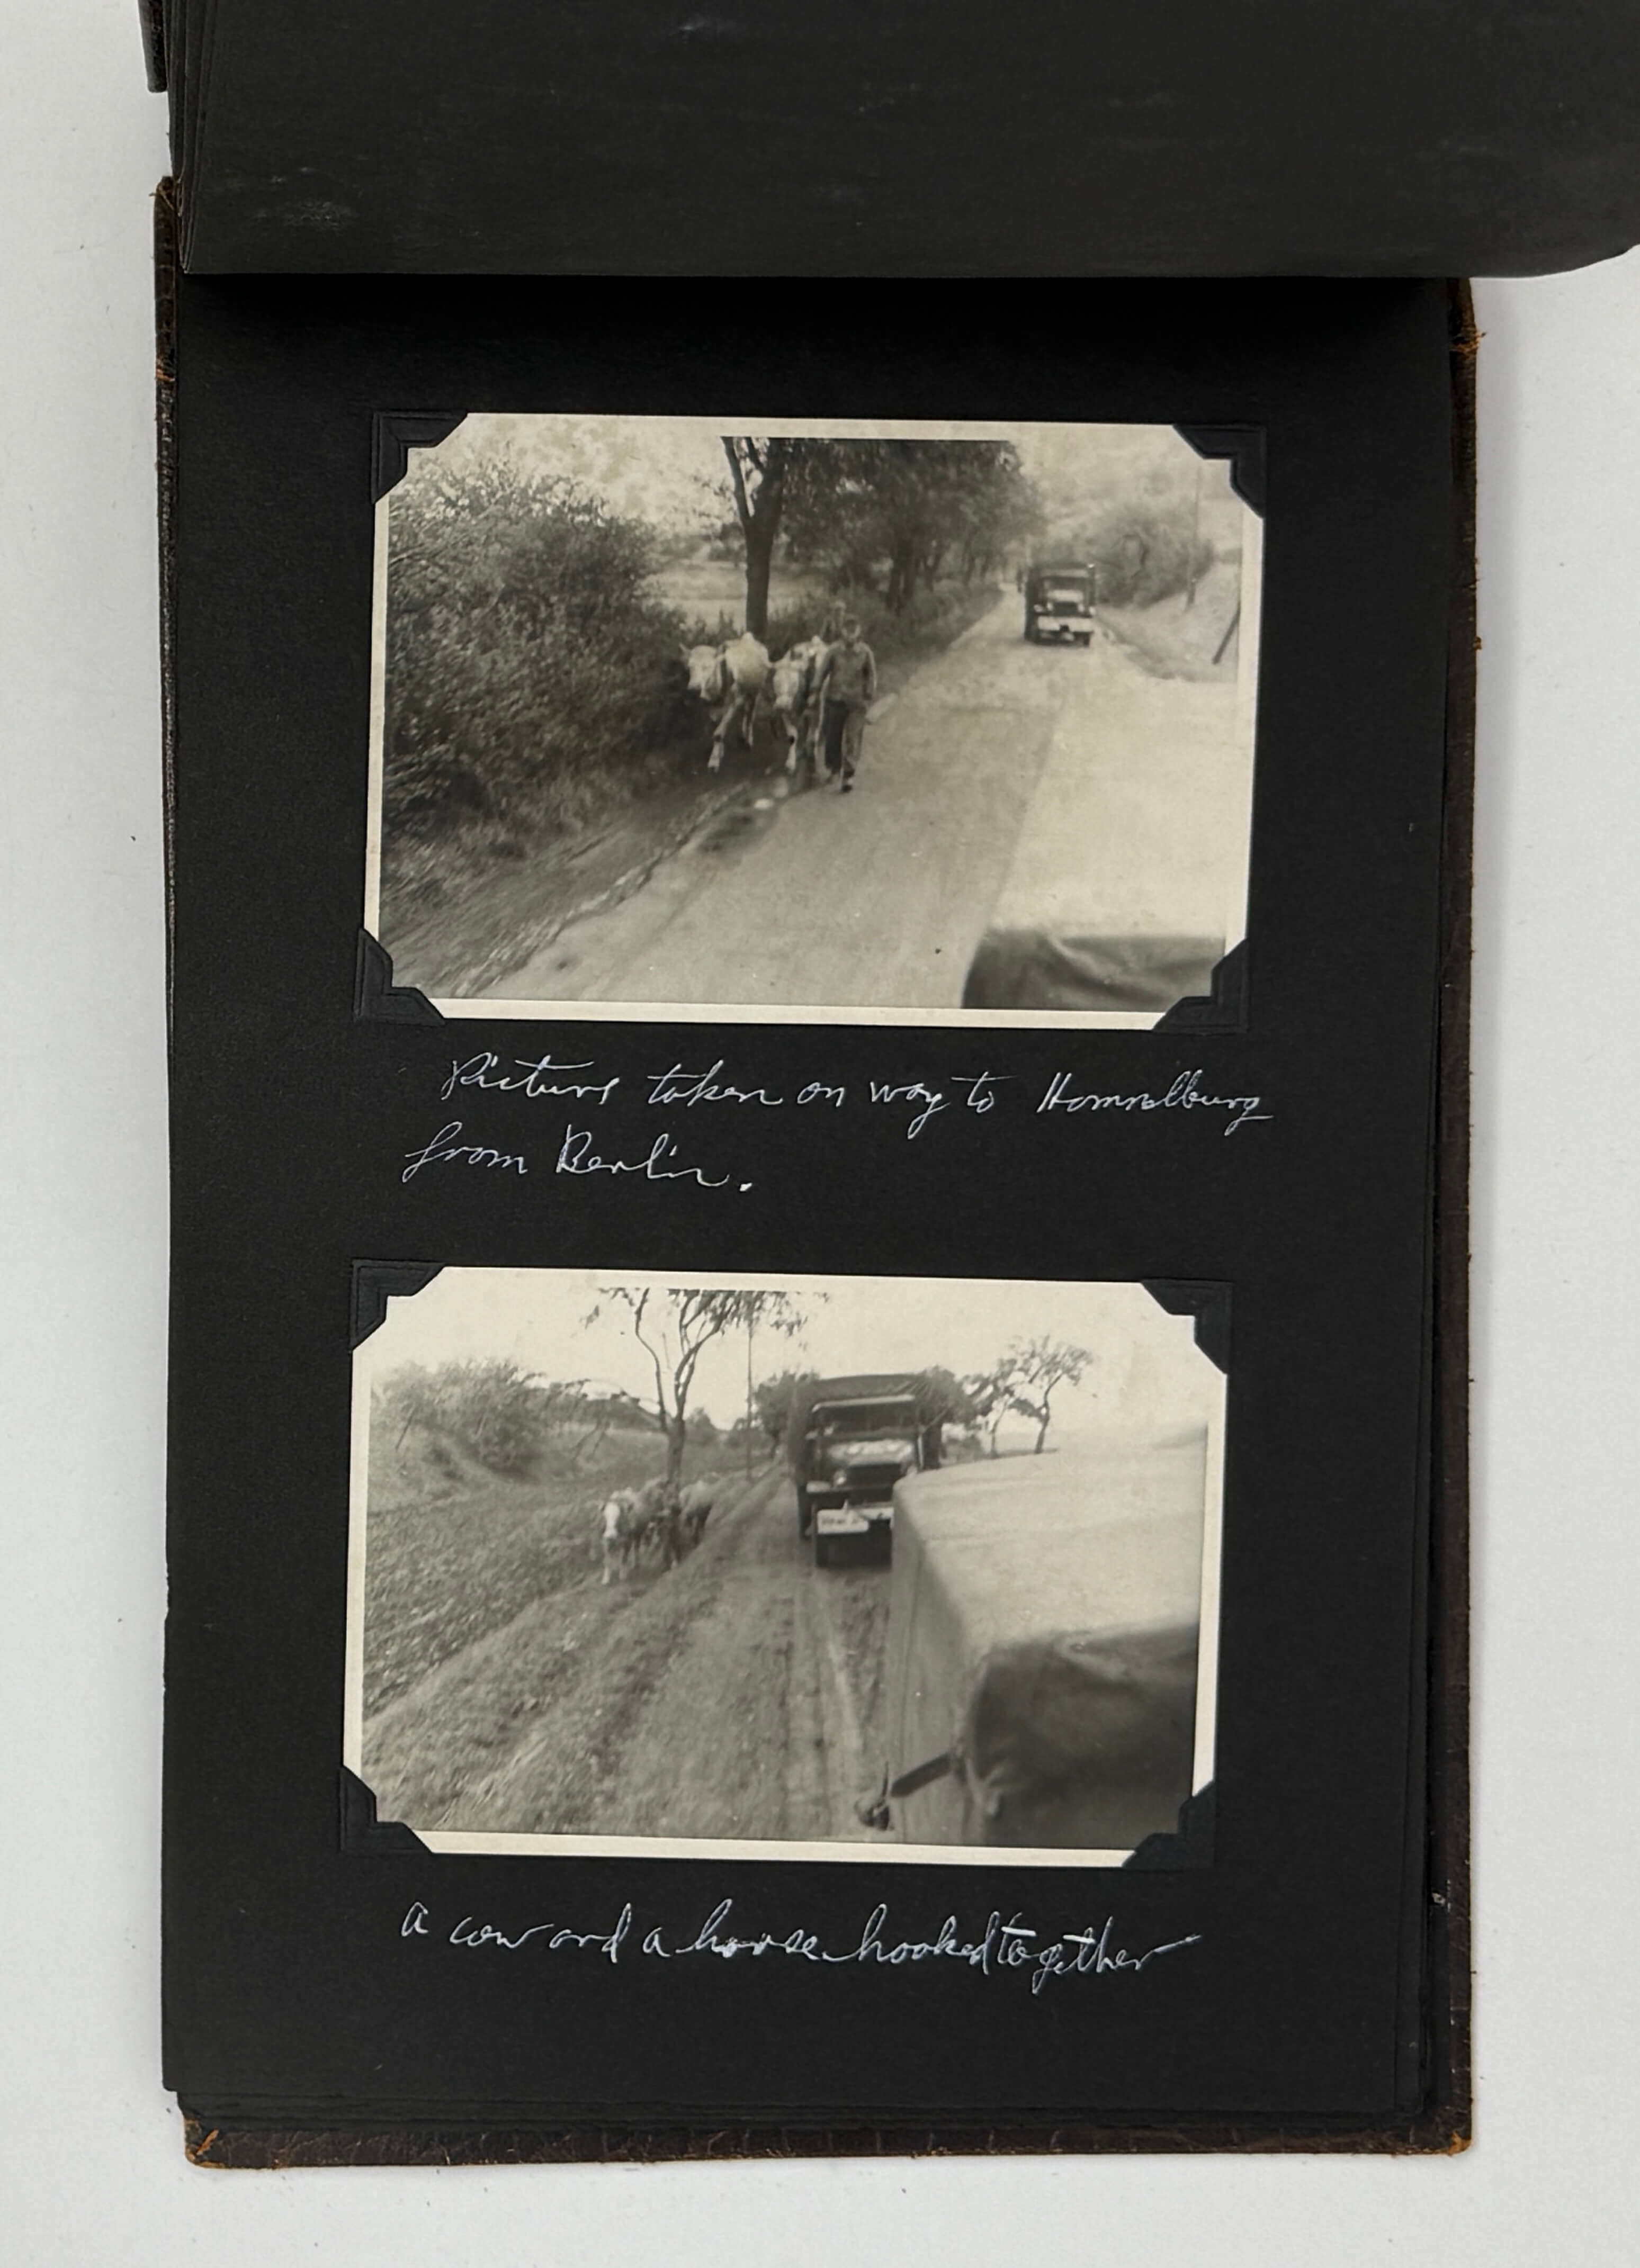 Picture taken on way to Hammelburg
from Berlin.
a cow and a horse hooked together